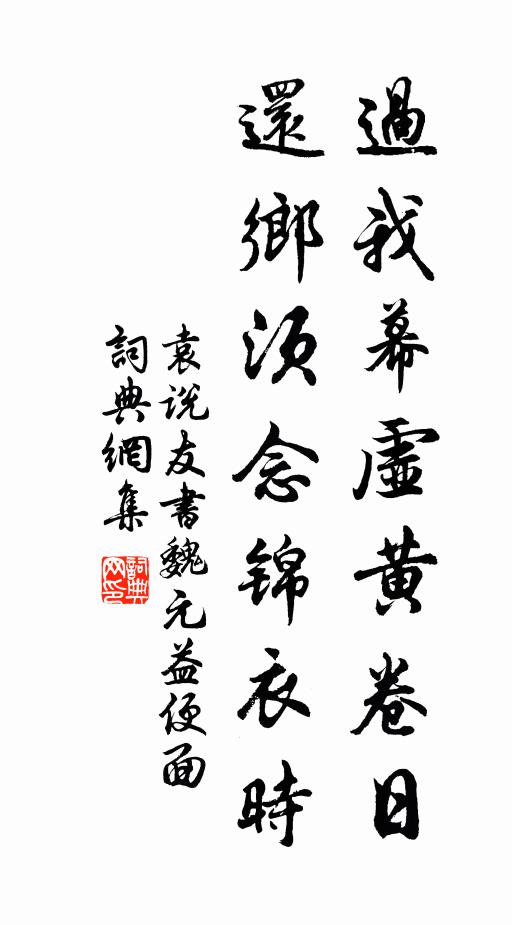 過我幕虛黃卷日
還鄉須念錦衣時
袁说友書魏元益便面
詞典網集
詞典网印